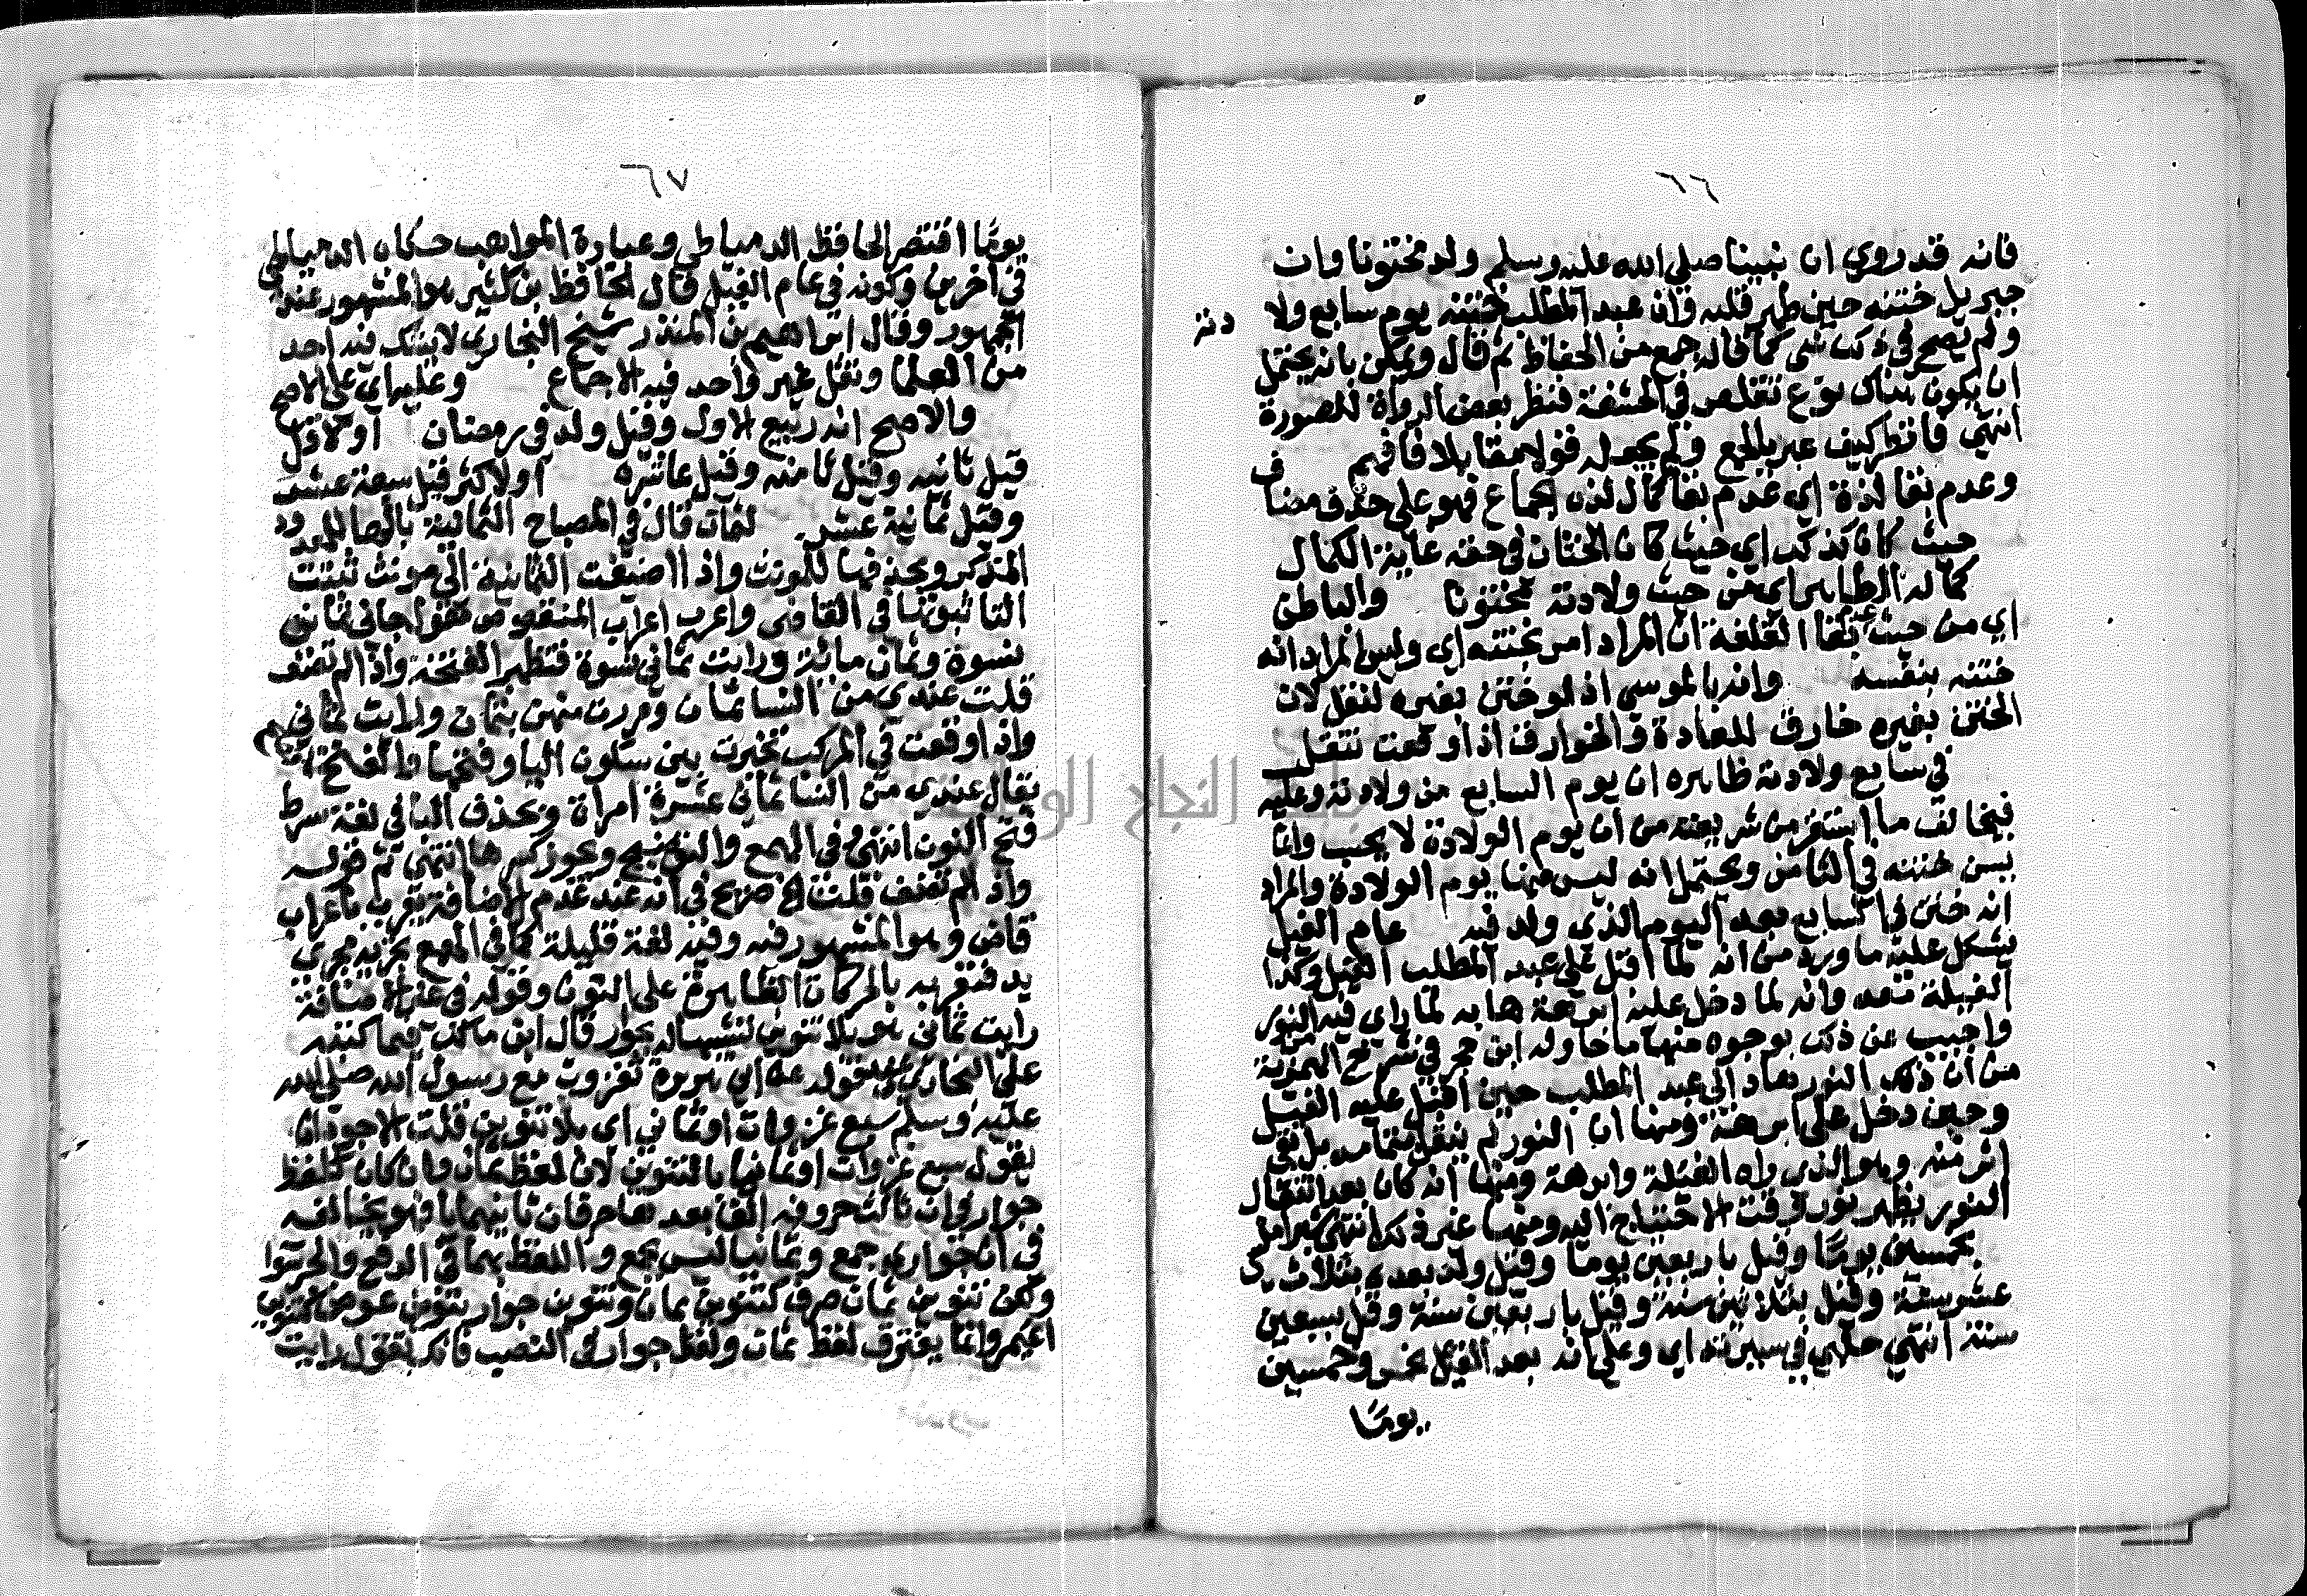 ٦٦
فانه قد روي ان نبينا صلي الله عليه وسلم ولد مختونا وان
جبريل ختنه حين طهر قلبه وان عبد المطلب ختنه يوم سابع ولا دته
ولم يصح في ذلك شي كما قاله جمع من الحفاظ ثم قال ويمكن بانه يحتمل
ان يكون هناك نوع تقلص في الحشفة فنظر بعض الرواة للصورة
انتهي فانظر كيف عبر بالجمع ولم يجعله قولا مقابلا فافهم
وعدم بقا لذة اي عدم بقا كمال لذن الجماع فهو علي حذف مضاف
حيث كان كذلك اي حيث كان الختان في حقه غاية الكمال
كماله الظاهر اي من حيث ولادته مختونا والباطن
اي من حيث عدم بقا القلفة ان المراد امر بختنه اي وليس المراد انه
ختنه بنفسه وانه بالموسي اذ لو ختن بغيره لنقل لان
الختن بغيره خارق للعادة والخوارق اذا وقعت تنقل
في سابع ولادته ظاهره ان يوم السابع من ولادته وعليه
فيخالف ما استقر من شريعته من ان يوم الولادة لا يحسب وانما
يسن ختنه في الثامن ويحتمل انه ليس منها يوم الولادة والمراد
انه ختن في السابع بعد اليوم الذي ولد فيه عام الفيل
يشكل عليه ما ورد من انه لما اقبل علي عبد المطلب الفيل وكذا
الفيلة سجد وانه لما دخل عليه ابرهة هابه لما راي فيه النور
واجيب عن ذلك بوجوه منها ما حاوله ابن حجر في شرح الهمزية
من ان ذلك النور عاد الي عبد المطلب حين اقبل عليه الفيل
وحين دخل علي ابرهة ومنها ان النور لم ينتقل بتمامه بل بقي
اثر منه وهو الذي راه الفيلة وابرهة ومنها انه كان بعد انتقال
النور يظهر نور وقت الاحتياج اليه ومنها غير ذلك انتهي شبراملسي
بخمسين يوما وقيل باربعين يوما وقيل ولد بعده بثلاث
عشر سنة وقيل بثلاثين سنة وقيل باربعين سنة وقيل بسبعين
سنة انتهي حلبي في سيرته اي وعلي انه بعد الفيل بخمس وخمسين
يومًا
٦٧
يومًا اقتصر الحافظ الدمياطي وعبارة المواهب حكاه الدمياطي
في اخرين وكونه في عام الفيل قال الحافظ بن كثير هو المشهور عند
الجمهور وقال ابراهيم بن المنذر شيخ البخاري لا يشك فيه احد
من العلما ونقل غير واحد فيه الاجماع وعليهاي علي الاصح
والاصح انه ربيع الاول وقيل ولد في رمضان او لاقل
قيل ثانيه وقيل ثامنه وقيل عاشره او لاكثر قيل سبعة عشر
وقيل ثمانية عشر لثمان قال في المصباح الثمانية بالها للمعدود
المذكر وبحذفها للمونث واذا اضيفت الثمانية الي مونث تثبت
اليا ثبوتها في القاضي واعرب اعراب المنقوص تقول جاني ثماني
نسوة وثماني مائة ورايت ثماني نسوة فتظهر الفتحة واذا لم تضف
قلت عندي من النسا ثمان ومررت منهن بثمان ورايت ثماني
واذا وقعت في المركب تخيرت بين سكون اليا وفتحها والفتح افصح
يقال عندي من النسا ثماني عشرة امراة وبحذف اليا في لغة بشرط
فتح النون انتهي وفي الهمع والنون تفتح ويجوز كسرها انتهي ثم قوله
واذا لم تضف قلت الخ صريح في انه عند عدم الاضافة يعرب باعراب
قاض وهو المشهور فيه وفيه لغة قليلة كما في الهمع تجريه مجري
يد فتعربه بالحركات الظاهرة علي النون وقوله في غير الاضافة
رايت ثماني هو بلا تنوين لشبهه بجوار قال ابن مالك فيما كتبه
علي البخاري عند قوله عن ابي هريرة نغزوت مع رسول الله صلي الله
عليه وسلم سبع غزوات او ثماني اي بلا تنوين قلت الاجود ان
يقول سبع غزوات او ثمانيا بالتنوين لان لفظ ثمان وان كان كلفظ
جوار في ان ثالث حروفه الفا بعدها حرفان ثانيهما يا فهو يخالفه
في ان جواري جمع وثمانيا ليس بجمع واللفظ بهما في الرفع والجر سوا
ولكن تنوين ثمان صرف كتنوين يمان وتنوين جوار تنوين عوض كتنوين
اعيم وانما يفترق لفظ ثمان ولفظ جوار في النصب فانك تقول رايت